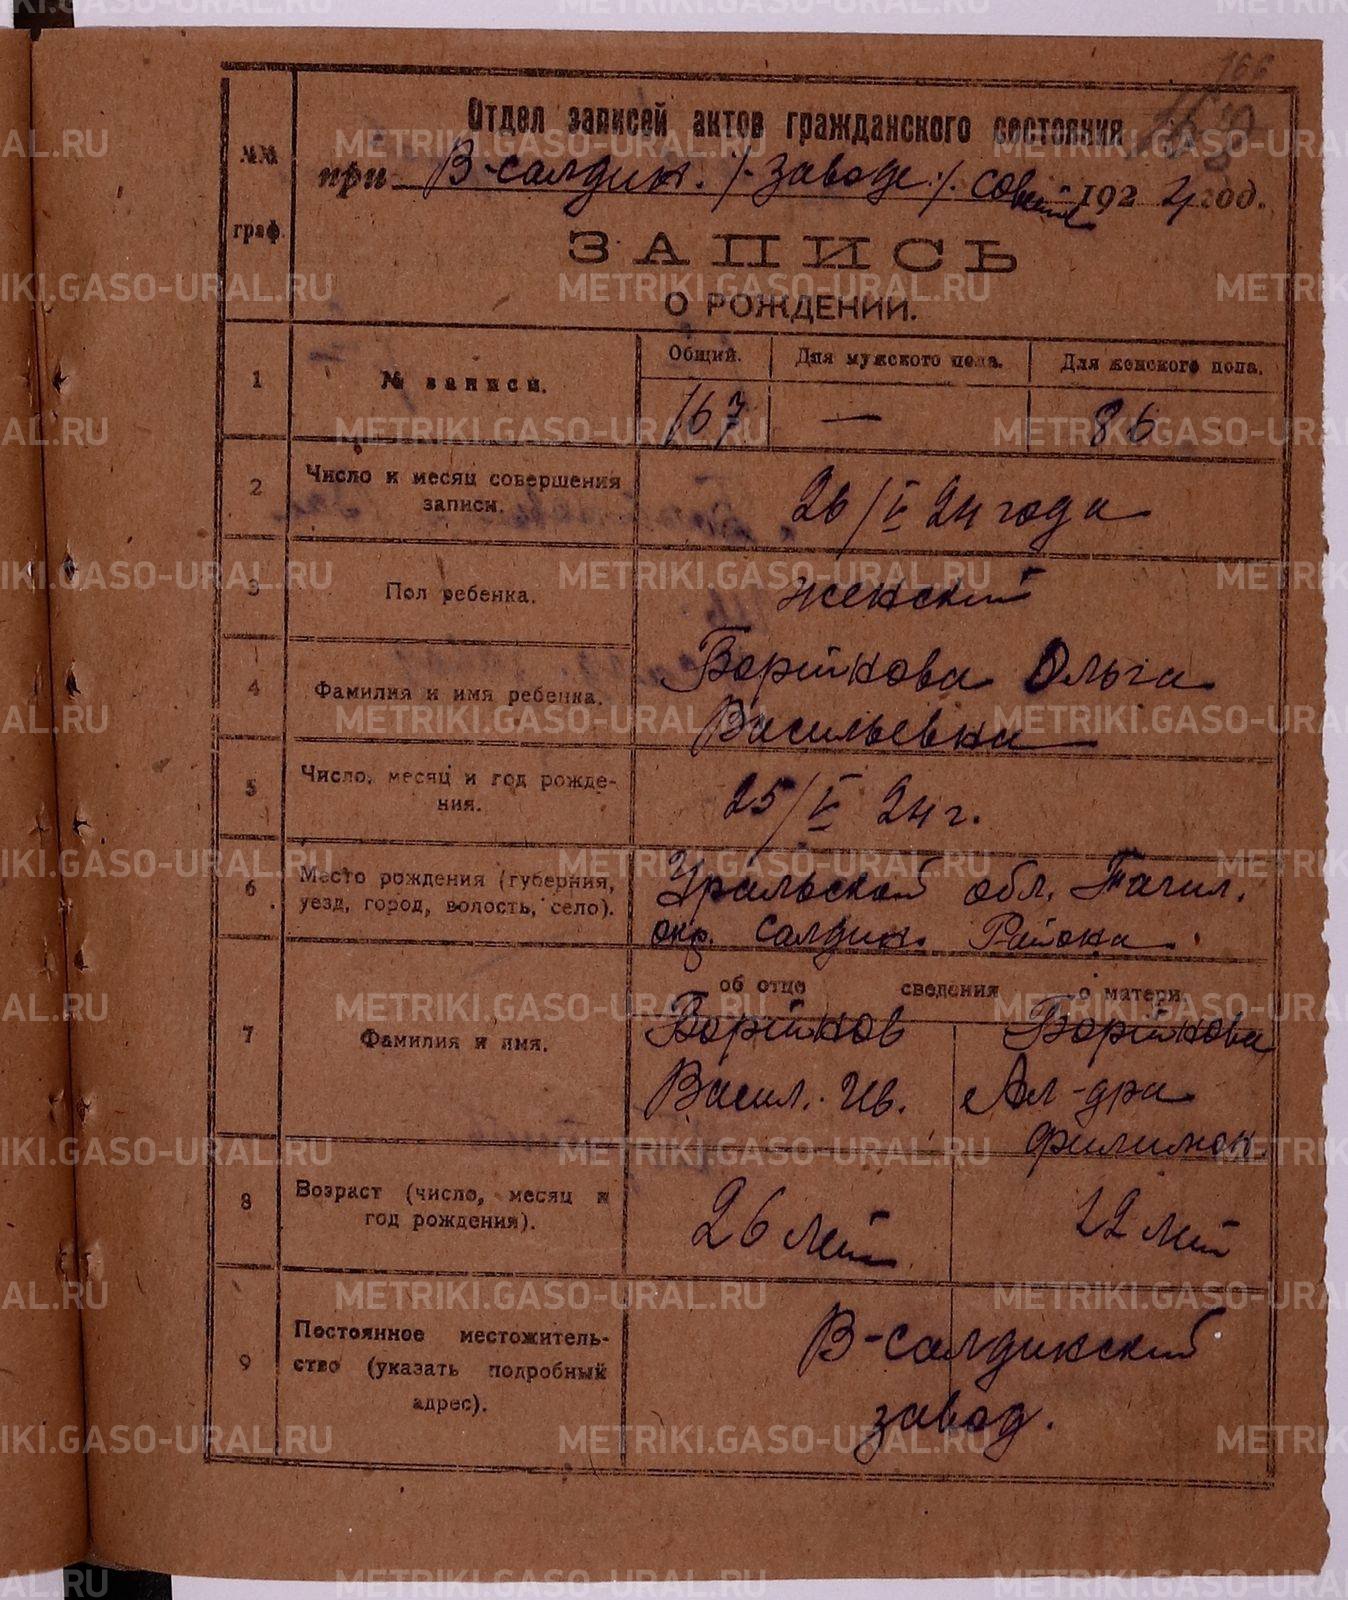 166
Отдел записей актов гражданского состояния
№№ граф.
при В-салдин. /-заводе./. 1924 год.
ЗАПИСЬ
О РОЖДЕНИИ.
1 № записи. Общий. Для мужского пола. Для женского пола.
167 — 86
2 Число и месяц совершения записи. 26/V 24 года
3 Пол ребенка. женский
4 Фамилия и имя ребенка. Ольга
Васильевна
5 Число, месяц и год рождения. 25/V 24 г.
6 Место рождения (губерния, уезд, город, волость, село). Уральской обл. Тагил.
окр. Салдин. Района.
об отце сведения о матери.
7 Фамилия и имя.
Васил. Ив. Ал-дра
Филимон.
8 Возраст (число, месяц и год рождения). 26 лет 22 лет
9 Постоянное местожительство (указать подробный адрес). В-салдинский
завод.
METRIKI.GASO-URAL.RU